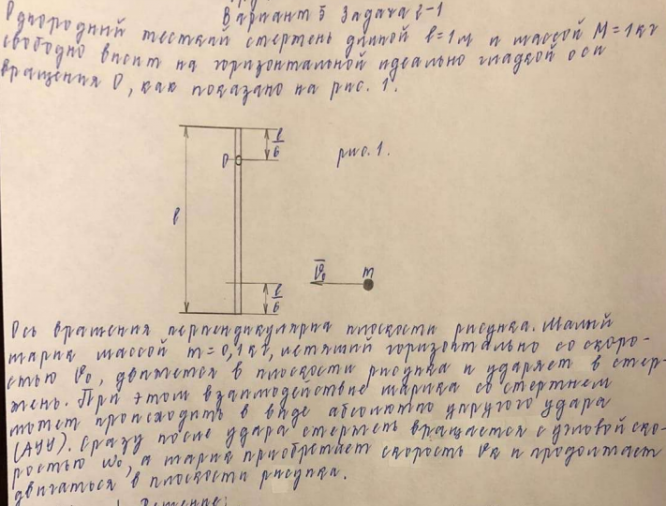 Вариант 5 Задача 2-1
Однородный жесткий стержень длиной l=1м и массой M=1кг
свободно висит на горизонтальной идеально гладкой оси
вращения O, как показано на рис. 1.
l/6
O
рис. 1.
l
v̄₀
m
l/6
Ось вращения перпендикулярна плоскости рисунка. Малый
шарик массой m=0,1кг, летящий горизонтально со скоро-
стью v₀, движется в плоскости рисунка и ударяет в стер-
жень. При этом взаимодействие шарика со стержнем
может происходить в виде абсолютно упругого удара
(АУУ). Сразу после удара стержень вращается с угловой ско-
ростью ω₀, а шарик приобретает скорость vк и продолжает
двигаться в плоскости рисунка.
Решение: